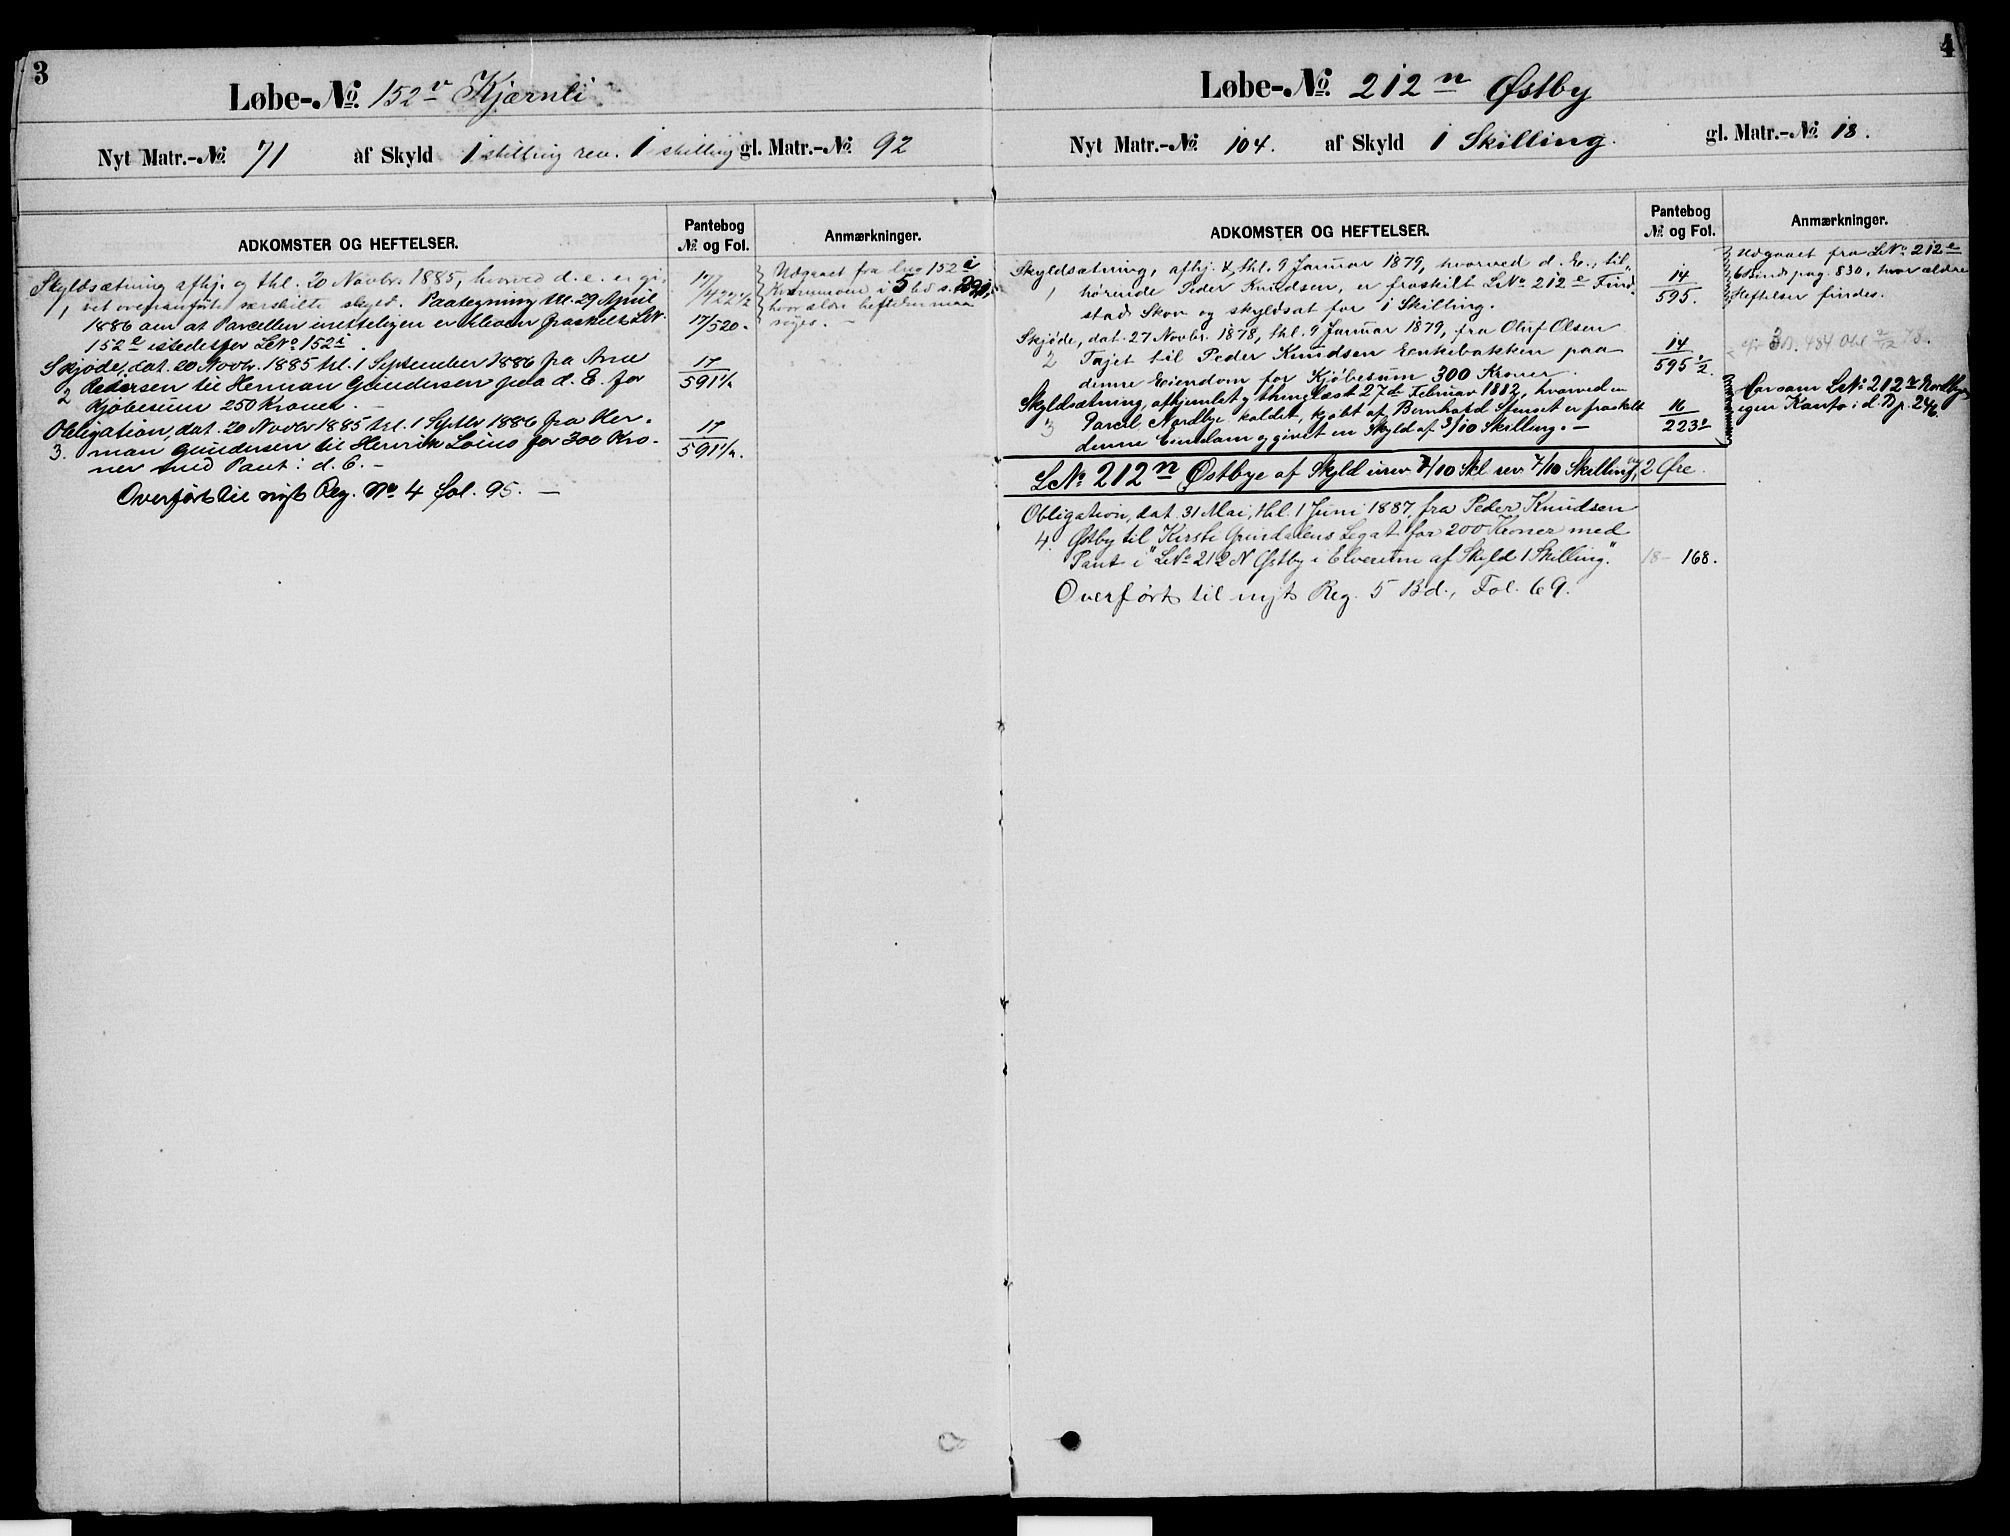 3
Løbe-No. 152 v Kjærnli
Nyt Matr.-No. 71 af Skyld 1 skilling rev. 1 skilling gl. Matr.-No. 92
ADKOMSTER OG HEFTELSER.
Pantebog
No. og Fol.
Anmærkninger.
Skyldsætning afhj. og thl. 20 Novbr. 1885, hvorved d. e. er gi-
1, vet ovenanførte særskilte skyld. Paategning thl. 29 April
1886 om at Parcellen er fraskilt LNo.
152 e istedetfor LNo. 152 i.
17/422 1/2
17/520.
Udgaaet fra 152 i
i 5 bd s. 291,
hvor ældre heftelser maa
søges. —
Skjøde, dat. 20 Novbr. 1885 thl. 1 September 1886 fra Arne
2 Pedersen til Herman Gundersen paa d. E. for
Kjøbesum 250 Kroner. —
17
591 1/2
Obligation, dat. 20 Novbr 1885 thl. 1 Septbr 1886 fra Her-
3. man Gundersen til Henrik Løino for 300 Kro-
ner med Pant i d. E. —
17
591 1/2.
Overført til nyt Reg. No. 4 fol. 95. —
4
Løbe-No. 212 n Østby
Nyt Matr.-No. 104. af Skyld 1 Skilling. gl. Matr.-No. 18.
ADKOMSTER OG HEFTELSER.
Pantebog
No. og Fol.
Anmærkninger.
Skyldsætning, afhj. & thl. 9 Januar 1879, hvorved d. E., til-
1 hørende Peder Knudsen, er fraskilt LNo. 212 e Find-
stad Skov og skyldsat for 1 Skilling.
14
595.
Udgaaet fra LNo. 212 e
6 Bind pag. 830, hvor ældre
Heftelser findes.
Skjøde, dat. 27 Novbr. 1878, thl. 9 Januar 1879, fra Oluf Olsen
2 Tajet til Peder Knudsen Enkebakken paa
denne Eiendom for Kjøbesum 300 Kroner.
14
595 1/2.
3 B. 484 Obl 2/12 78.
Skyldsætning, afhjemlet og thinglæst 27de Februar 1882, hvorved en
3 Parcel, Nordbye kaldet, kjøbt af Bernhard Stenset er fraskilt
denne Eiendom og givet en Skyld af 3/10 Skilling. —
16
223
LNo. 212 Nordbye
egen Konto i d. P. p. 246
LNo. 212 n Østbye af Skyld urev 7/10 Skl rev 7/10 Skilling, 2 Øre.
Obligation, dat. 31 Mai, thl. 1 Juni 1887, fra Peder Knudsen
4. Østby til Kirsti Grindalens Legat for 200 Kroner med
Pant i "LNo 212 N Østby i Elverum af Skyld 1 Skilling."
18 - 168.
Overført til nyt Reg. 5 Bd., Fol. 69.